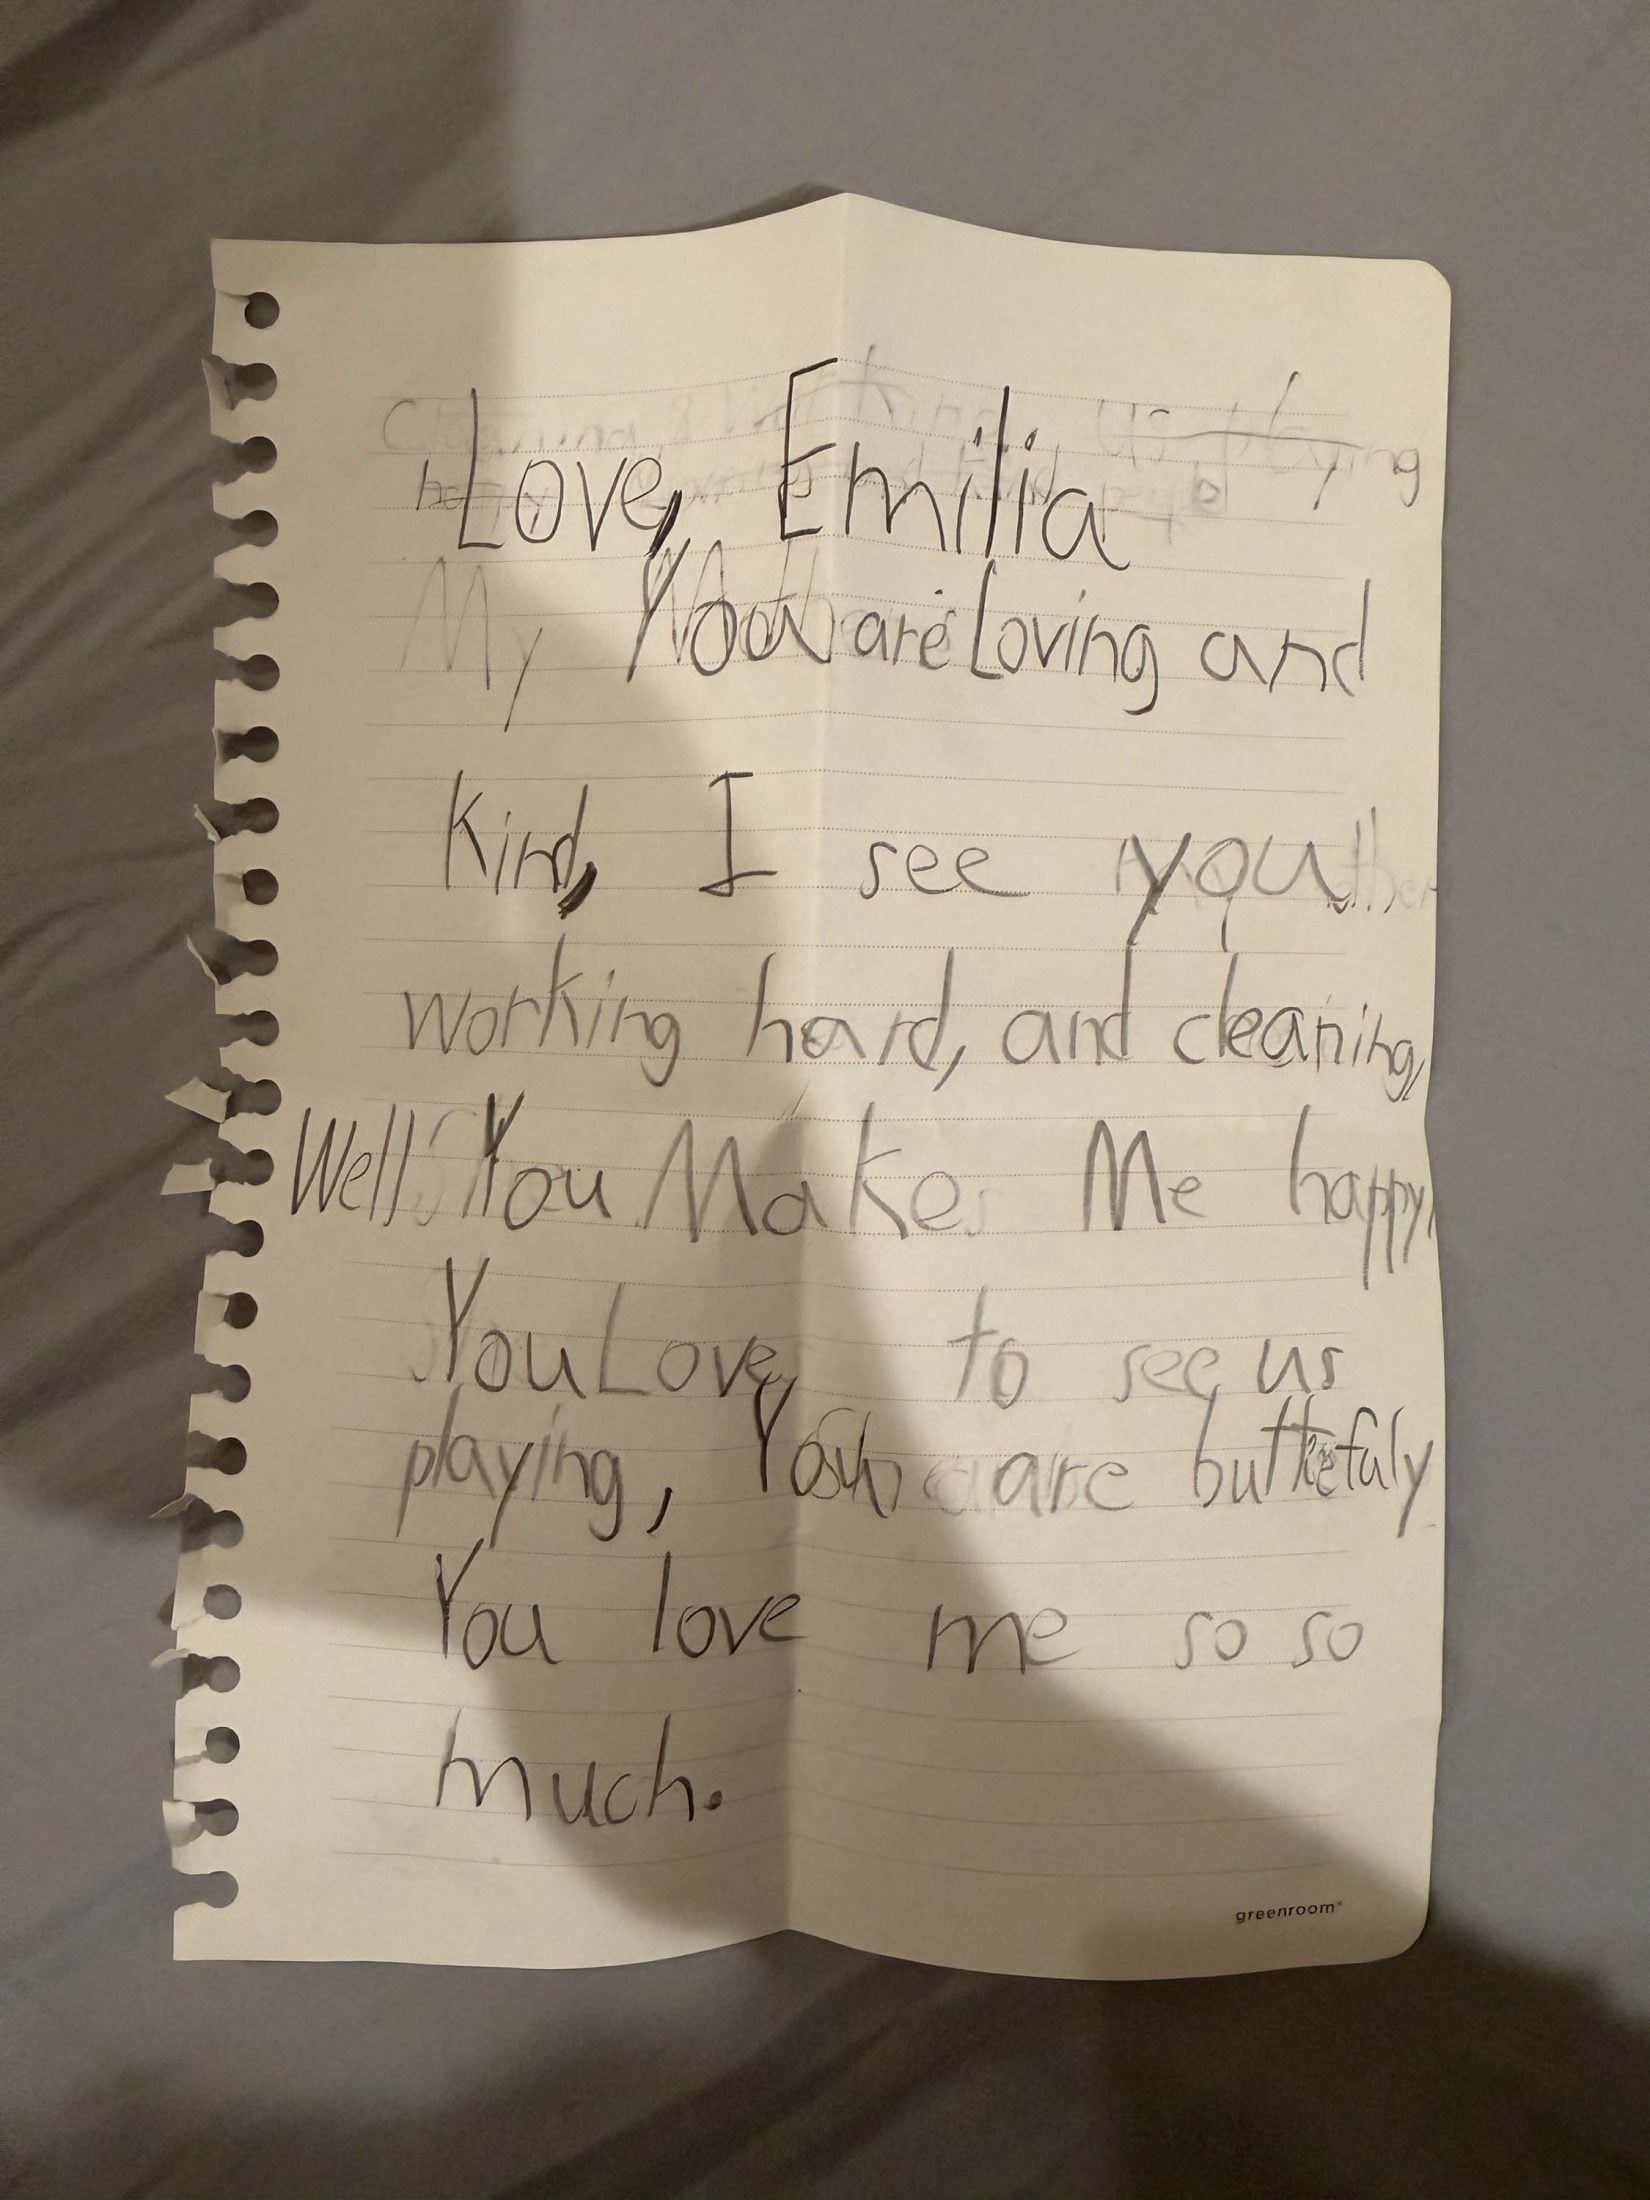 Love, Emilia
You are Loving and
Kind, I see you
working hard, and cleaning,
Well You Make Me happy,
You Love to see us
playing, You are buttiefuly
You love me so so
much.
greenroom